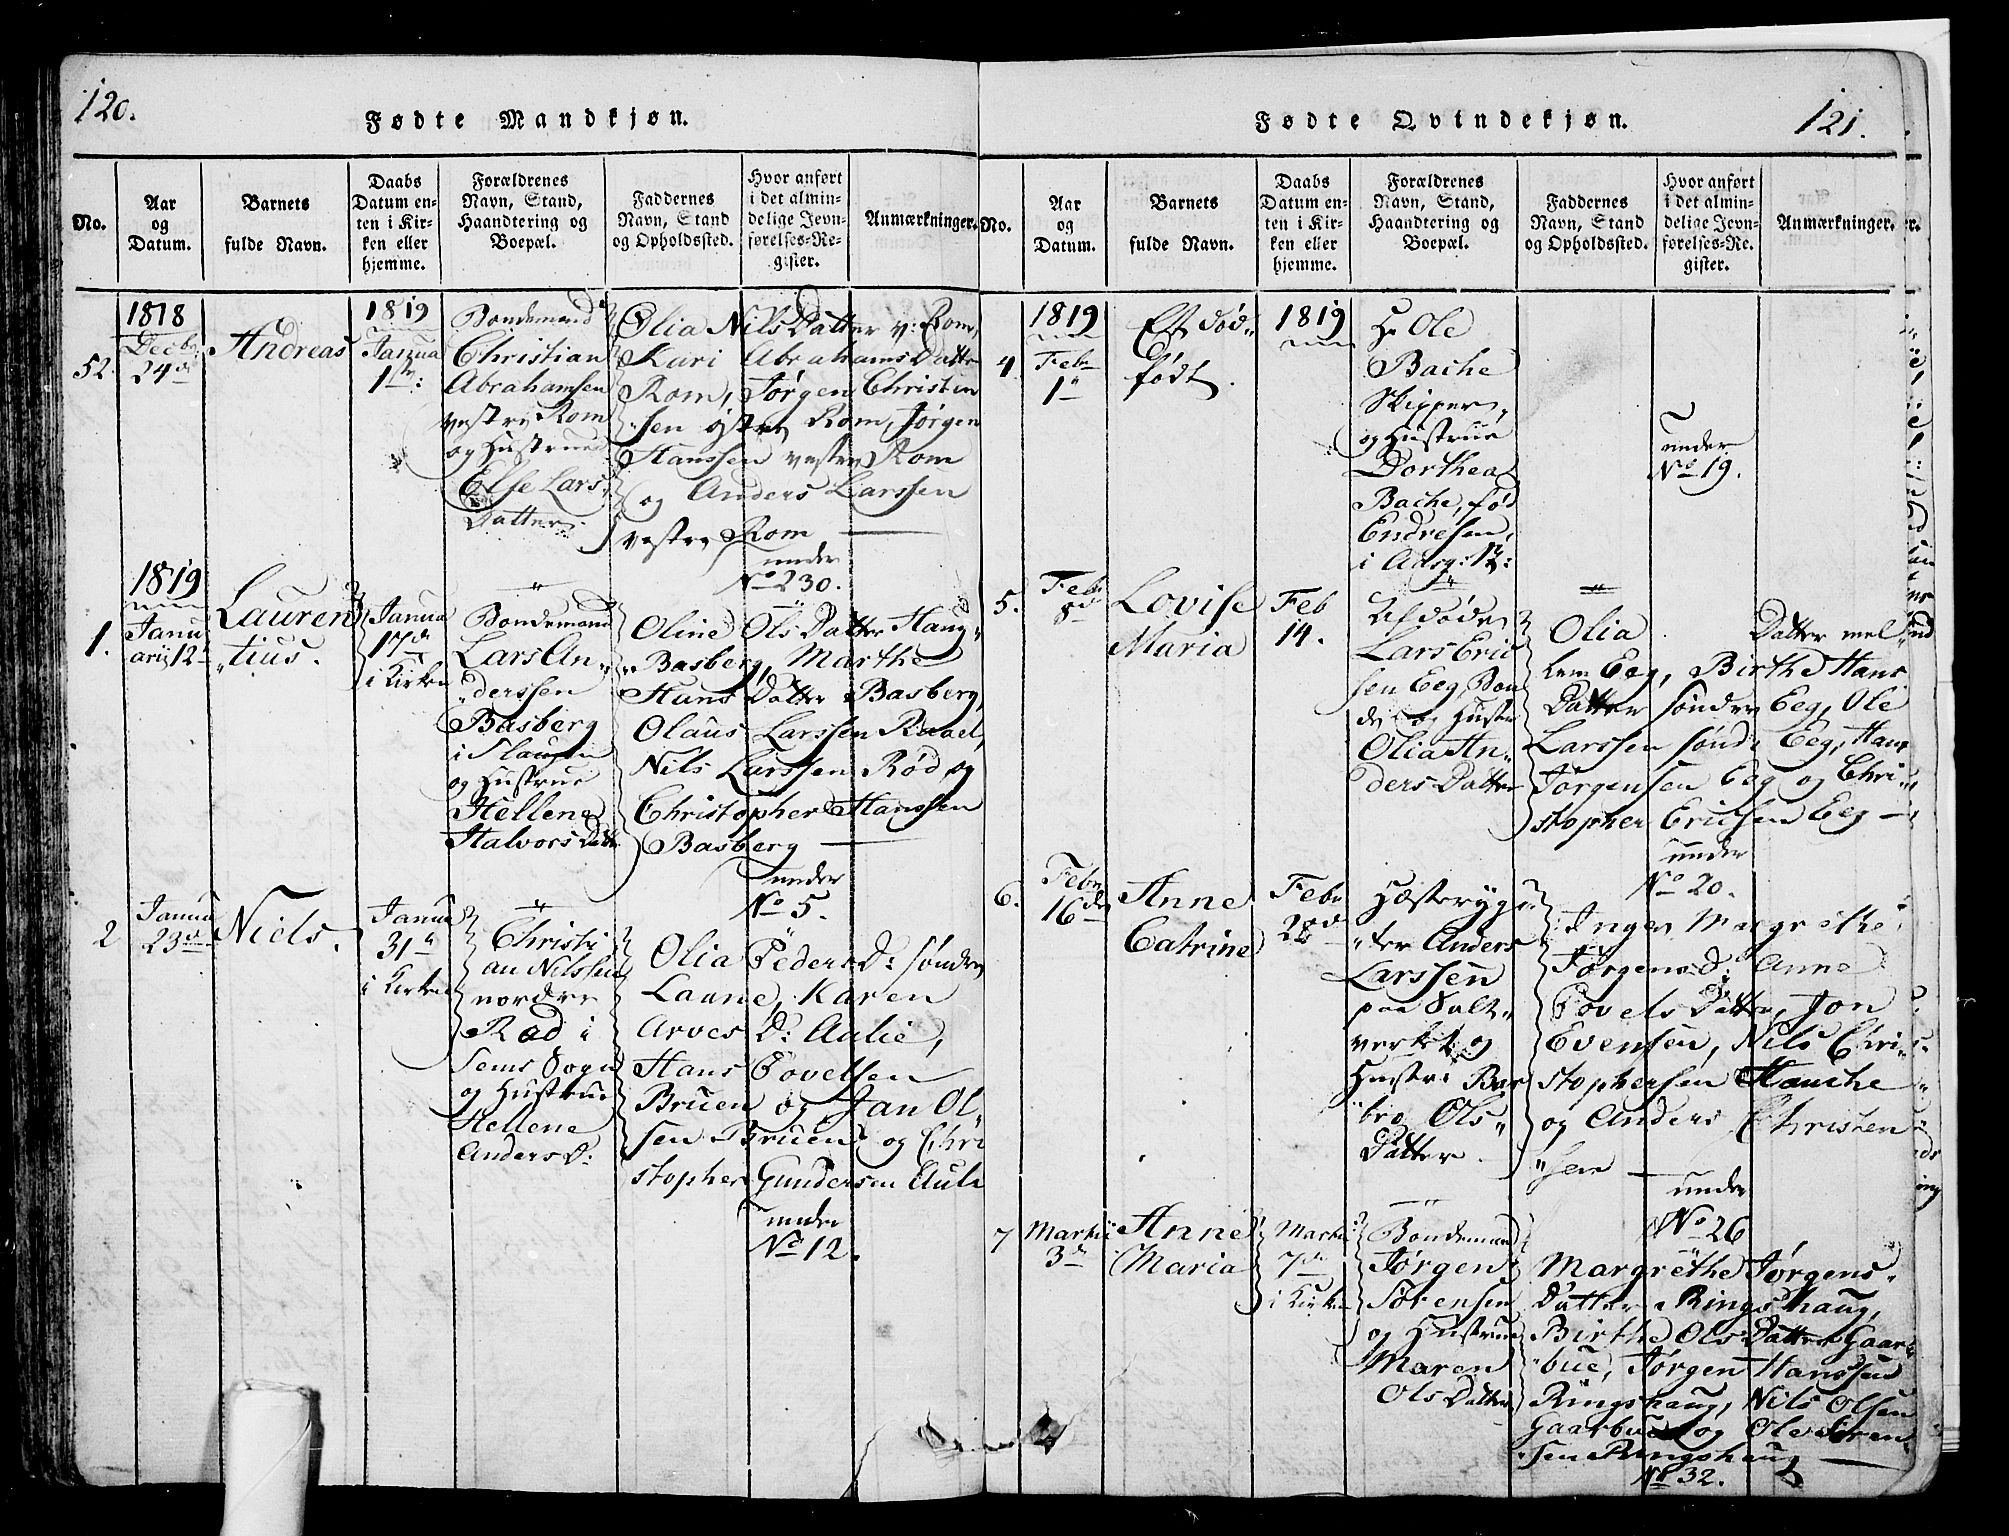 120.
Fødte Mandkjøn.
No.
Aar
og
Datum.
Barnets
fulde Navn.
Daabs
Datum en-
ten i Kir-
ken eller
hjemme.
Forældrenes
Navn, Stand,
Haandtering og
Boepæl.
Faddernes
Navn, Stand
og Opholdssted.
Hvor anført
i det almin-
delige Jevn-
førelses-Re-
gister.
Anmærkninger.
52.
1818
Decbr
24de
Andreas
1819
Janua
1ste:
Bondemand
Christian
Abrahamsen
vestre Rom
og Hustrue
Else Lars
Datter.
Olia Nils Datter v: Rom,
Kari Abrahams Datter
Rom, Jørgen Christen
sen østre Rom, Jørgen
Hanssen vestre Rom
og Anders Larssen
vestre Rom
under
No 230.
1.
1819
Janu
arii 12
Lauren
tius.
Janua
17de
i Kirken
Bondemand
Lars An
derssen
Basberg
i Slauen
og Hustrue
Hellene
Halvors Datt
Oline Ols Datter Haug
Basberg, Marthe
Hans Datter Basberg,
Olaus Larssen Raael,
Nils Larssen Rød og
Christopher Hanssen
Basberg
under
No 5.
2
Janua
23de
Niels.
Janua
31te
i Kirken
Christi
an Nilssen
nordre
Rød i
Sems Sogn
og Hustrue
Hellene
Anders D:
Olia Peders D: søndre
Laune, Karen
Arves D: Aulie,
Hans Povelsen
Bruen og Jan Ol
sen Bruen og Chri
stopher Gundersen Auli
under
No 12.
121.
Fødte Qvindekjøn.
No.
Aar
og
Datum.
Barnets
fulde Navn.
Daabs
Datum en-
ten i Kir-
ken eller
hjemme.
Forældrenes
Navn, Stand,
Haandtering og
Boepæl.
Faddernes
Navn, Stand
og Opholdssted.
Hvor anført
i det almin-
delige Jevn-
førelses-Re-
gister.
Anmærkninger.
4.
1819
Feb
1
Et død
født.
1819
Hr Ole
Bache
Skipper,
og Hustrue
Dorthea
Bache, fød
Endresen,
i Aasg:
under
No 19.
5.
Feb
8de
Lovise
Maria
Feb
14.
Afdøde
Lars Eric
sen Eeg Bon
de og Hustr
Olia An
ders Datter
Olia Datter mel
lem Eeg, Birthe Hans
Datter sønder Eeg, Ole
Larssen sønd: Eeg, Hans
Jørgensen Eeg og Chri
stopher Ericsen Eeg
under
No 20.
6.
Febr
16de
Anne
Catrine
Febr
28de
Anders
Larssen
paa Salt
verket og
Hustr: Bar
bra Ols
Datter
Inger Margrethe
Jørgens D: Anne
Povels Datter, Jon
Evensen, Nils Chri
stophersen Hauche
og Anders Christen
sen
under
No 26
7
Martii
3de
Anne
Maria
Martii
7de
i Kirken
Bondemand
Jørgen
Sørensen
og Hustrue
Maren
Ols Datter
Margrethe Jørgens
Datter Ringshaug,
Birthe Ols Datter Gaar
bue, Jørgen Hanssen
Ringshaug, Nils Olsen
Gaarbue og Ole Søren
sen Ringshaug
No 32.